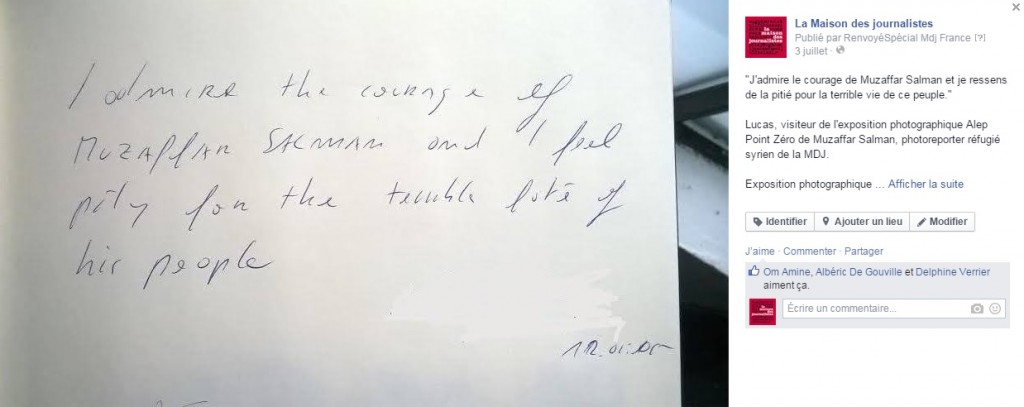 I admire the courage of
MUZAFFAR SALMAN and I feel
pity for the terrible fate of
his people
La Maison des journalistes
Publié par RenvoyéSpécial Mdj France [?]
3 juillet ·
"J'admire le courage de Muzaffar Salman et je ressens
de la pitié pour la terrible vie de ce peuple."
Lucas, visiteur de l'exposition photographique Alep
Point Zéro de Muzaffar Salman, photoreporter réfugié
syrien de la MDJ.
Exposition photographique ... Afficher la suite
Identifier Ajouter un lieu Modifier
J'aime · Commenter · Partager
Om Amine, Albéric De Gouville et Delphine Verrier
aiment ça.
Écrire un commentaire...